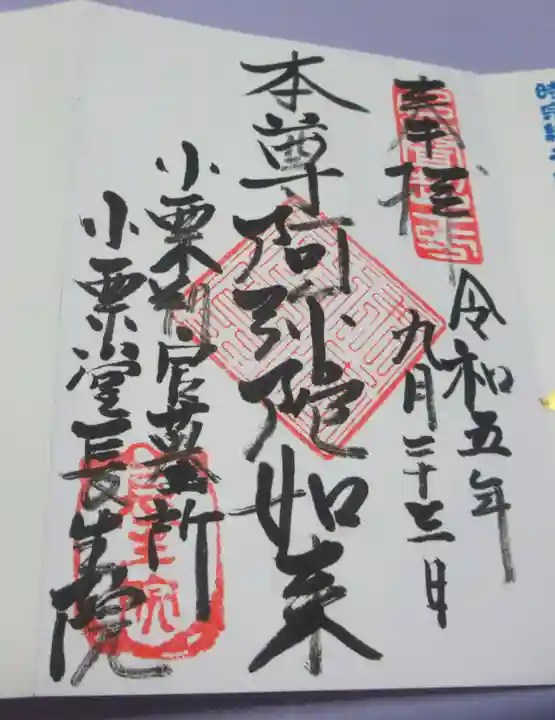 奉拝
令和五年
九月二十三日
本尊阿弥陀如来
小栗判官墓所
小栗堂長生院
長生院